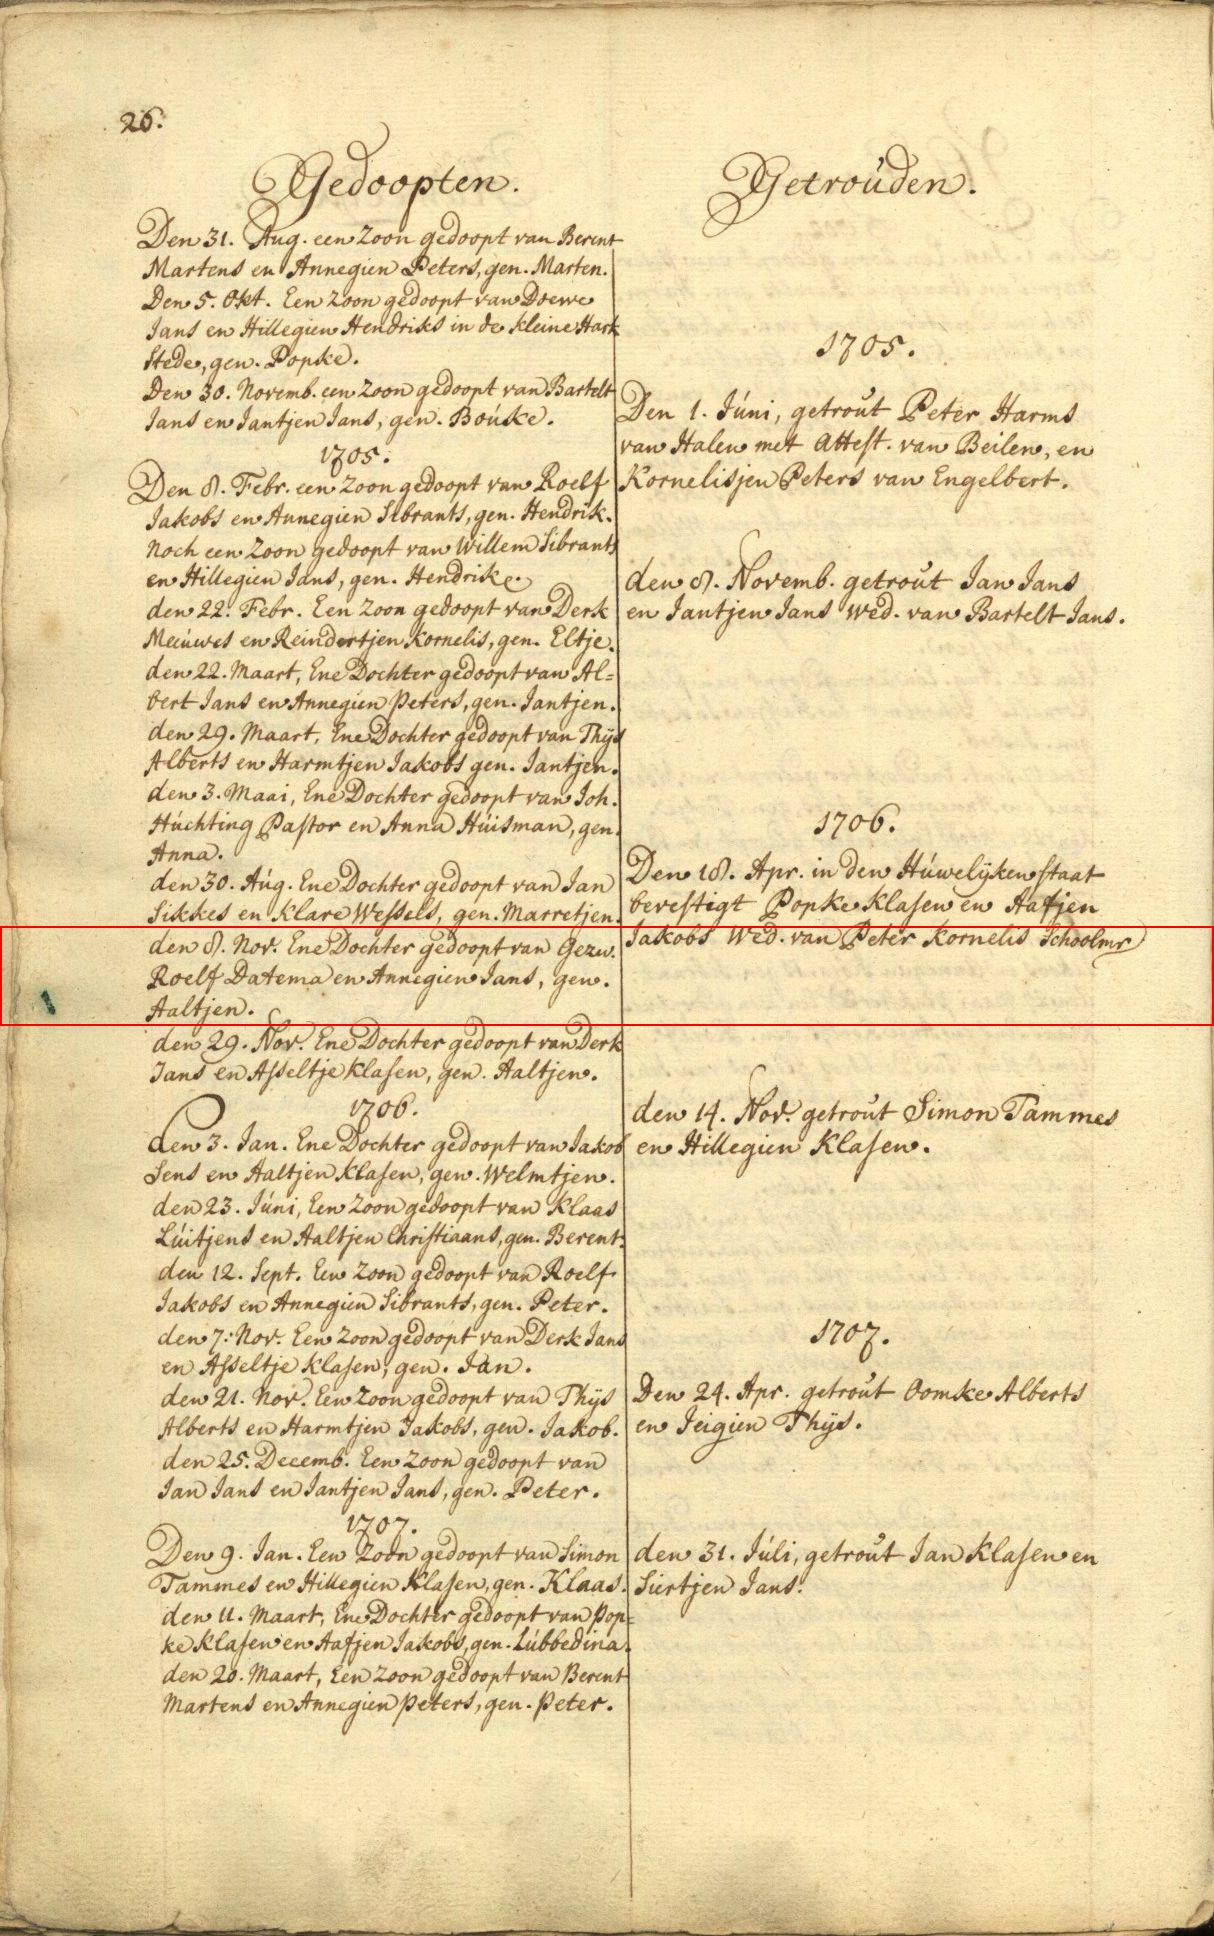 26.
Gedoopten.
Den 31. Aug. een Zoon gedoopt van Berent
Martens en Annegien Peters, gen. Marten.
Den 5. Okt. Een Zoon gedoopt van Doewe
Jans en Hillegien Hendriks in de kleine Hark
stede, gen. Popke.
Den 30. Novemb. een Zoon gedoopt van Bartelt
Jans en Jantjen Jans, gen. Bouke.
1705.
Den 8. Febr. een Zoon gedoopt van Roelf
Jakobs en Annegien Sibrants, gen. Hendrik.
Noch een Zoon gedoopt van Willem Sibrants
en Hillegien Jans, gen. Hendrik.
den 22. Febr. Een Zoon gedoopt van Derk
Meeuwes en Reindertjen Kornelis, gen. Eltje.
den 22. Maart, Ene Dochter gedoopt van Al=
bert Jans en Annegien Peters, gen. Jantjen.
den 29. Maart, Ene Dochter gedoopt van Thijs
Alberts en Harmtjen Jakobs gen. Jantjen.
den 3. Maai, Ene Dochter gedoopt van Joh.
Huchting Pastor en Anna Huisman, gen.
Anna.
den 30. Aug. Ene Dochter gedoopt van Jan
Sikkes en Klare Wessels, gen. Marretjen.
den 8. Nov. Ene Dochter gedoopt van Gezw.
Roelf Datema en Annegien Jans, gen.
Aaltjen.
den 29. Nov. Ene Dochter gedoopt van Derk
Jans en Asseltje Klasen, gen. Aaltjen.
1706.
den 3. Jan. Ene Dochter gedoopt van Jakob
Sens en Aaltjen Klasen, gen. Welmtjen.
den 23. Juni, Een Zoon gedoopt van Klaas
Luitjens en Aaltjen Christiaans, gen. Berent.
den 12. Sept. Een Zoon gedoopt van Roelf
Jakobs en Annegien Sibrants, gen. Peter.
den 7. Nov. Een Zoon gedoopt van Derk Jans
en Asseltje Klasen, gen. Jan.
den 21. Nov. Een Zoon gedoopt van Thijs
Alberts en Harmtjen Jakobs, gen. Jakob.
den 25. Decemb. Een Zoon gedoopt van
Jan Jans en Jantjen Jans, gen. Peter.
1707.
Den 9. Jan. Een Zoon gedoopt van Simon
Tammes en Hillegien Klasen, gen. Klaas.
den 11. Maart, Ene Dochter gedoopt van Pop=
ke Klasen en Aafjen Jakobs, gen. Lubbedina.
den 20. Maart, Een Zoon gedoopt van Berent
Martens en Annegien Peters, gen. Peter.
Getrouden.
1705.
Den 1. Juni, getrout Peter Harms
van Halen met Attest. van Beilen, en
Kornelisjen Peters van Engelbert.
den 8. Novemb. getrout Jan Jans
en Jantjen Jans Wed. van Bartelt Jans.
1706.
Den 18. Apr. in den Huwelijken staat
bevestigt Popke Klasen en Aafjen
Jakobs Wed. van Peter Kornelis Schoolmr
den 14. Nov. getrout Simon Tammes
en Hillegien Klasen.
1707.
Den 24. Apr. getrout Oomke Alberts
en Jeigien Thijs.
den 31. Juli, getrout Jan Klasen en
Siertjen Jans.